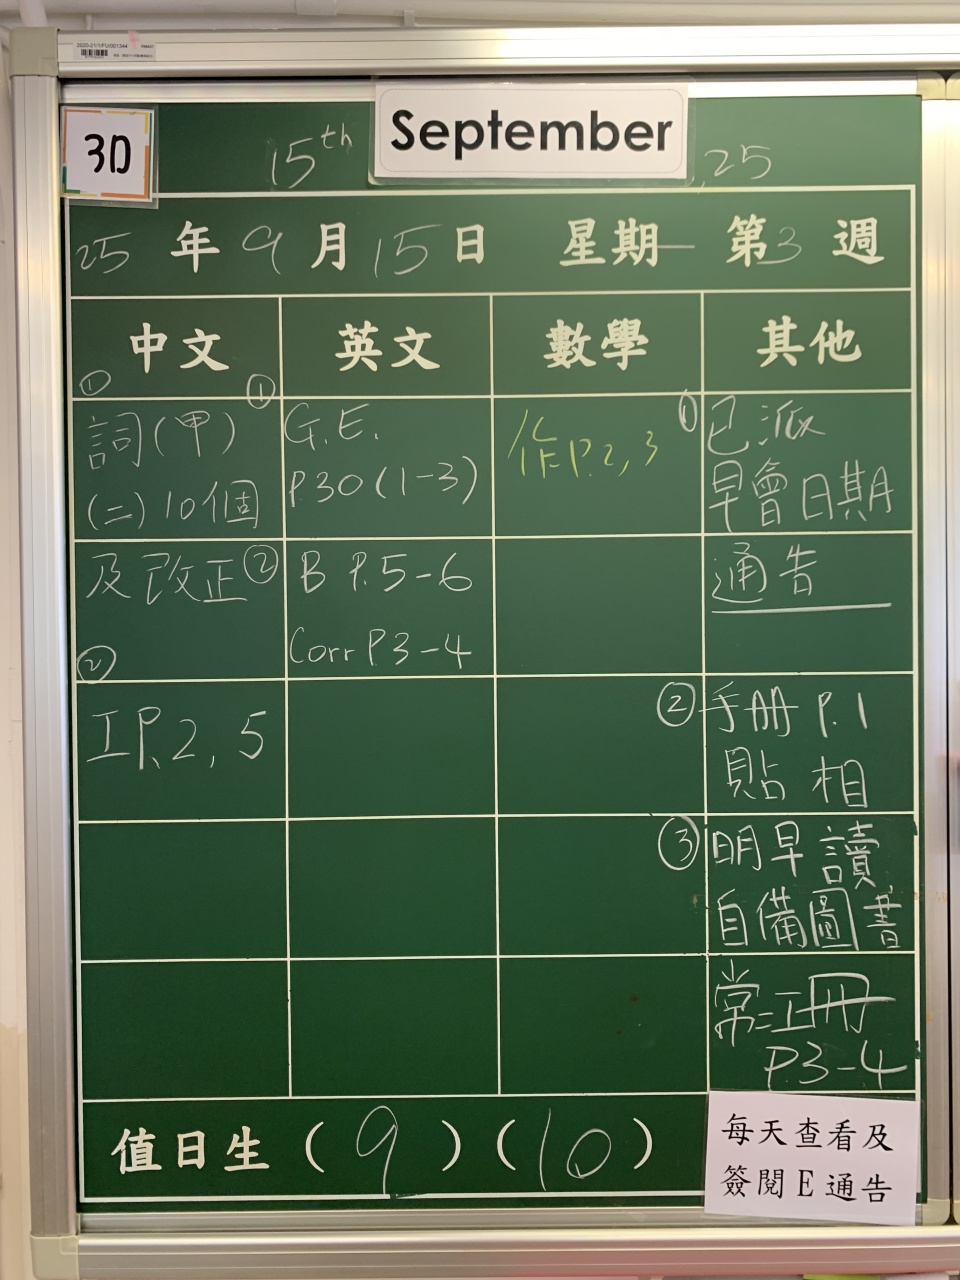 2020-21/1/FU/001344
3D
15th September, 25
25 年 9 月 15 日 星期一 第3週
中文 英文 數學 其他
①
詞(甲)
(二)10個
及改正
②
工P.2,5
①
G.E.
P.30(1-3)
②
B P.5-6
Corr P3-4
作P.2,3
①
已派
早會日期
通告
②
手冊 P.1
貼相
③
明早讀
自備圖書
常=工冊
P.3-4
值日生(9)(10)
每天查看及
簽閱E通告